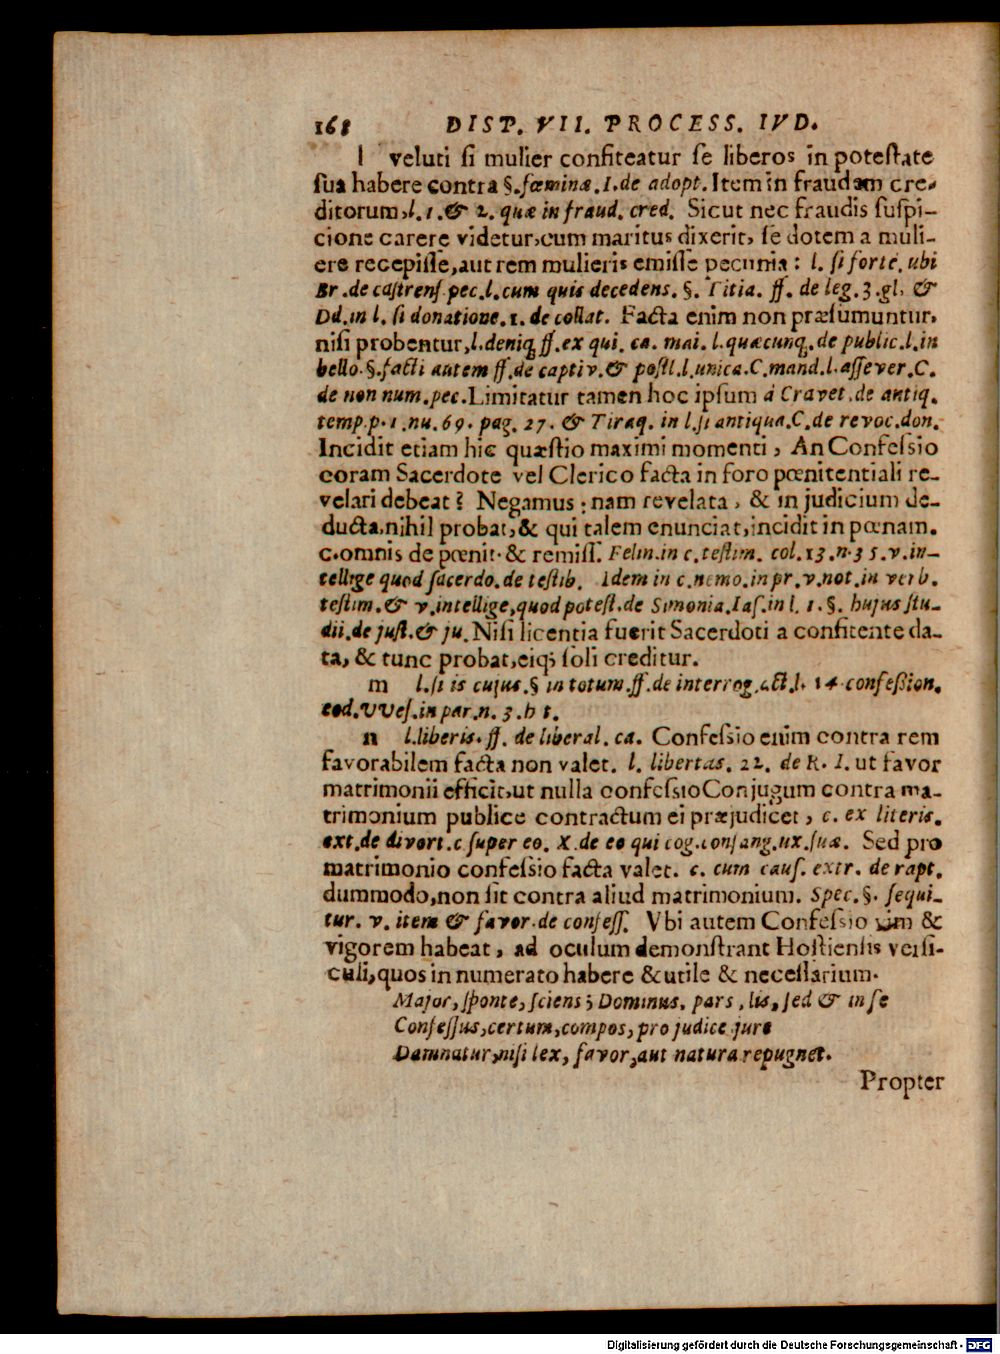 168 DISP. VII. PROCESS. IVD.
l veluti ſi mulier confiteatur ſe liberos in poteſtate
ſua habere contra §. fœminæ. I. de adopt. Item in fraudem cre-
ditorum, l. 1. & 2. quæ in fraud. cred. Sicut nec fraudis ſuſpi-
cione carere videtur, cum maritus dixerit, ſe dotem a muli-
ere recepiſſe, aut rem mulieris emiſſe pecunia: l. ſi forte. ubi
Br. de caſtrenſ. pec. l. cum quis decedens. §. Titia. ff. de leg. 3. gl. &
Dd. in l. ſi donatione. 1. de collat. Facta enim non præſumuntur,
niſi probentur, l. deniq; ff. ex qui. ca. mai. l. quæcunq. de public. l. in
bello. §. facti autem ff. de captiv. & poſtl. l. unica. C. mand. l. aſſever. C.
de non num. pec. Limitatur tamen hoc ipſum á Cravet. de antiq.
temp. p. 1. nu. 69. pag. 27. & Tiraq. in l. ſi antiqua. C. de revoc. don.
Incidit etiam hic quæſtio maximi momenti, An Confeſsio
coram Sacerdote vel Clerico facta in foro pœnitentiali re-
velari debeat? Negamus: nam revelata, & in judicium de-
ducta, nihil probat, & qui talem enunciat, incidit in pœnam.
c. omnis de pœnit. & remiſſ. Felin. in c. teſtim. col. 13. n. 35. v. in-
tellige quod ſacerdo. de teſtib. Idem in c. nemo. in pr. v. not. in verb.
teſtim. & v. intellige, quod poteſt. de Simonia. Iaſ. in l. 1. §. hujus ſtu-
dii. de juſt. & ju. Niſi licentia fuerit Sacerdoti a confitente da-
ta, & tunc probat, eiq; ſoli creditur.
m l. ſi is cujus. § in totum. ff. de interrog. act. l. 14. confeßion.
eod. VVeſ. in par. n. 3. h t.
n l. liberis. ff. de liberal. ca. Confeſsio enim contra rem
favorabilem facta non valet. l. libertas. 22. de R. I. ut favor
matrimonii efficit, ut nulla confeſsio Conjugum contra ma-
trimonium publice contractum ei præjudicet, c. ex literis.
ext. de divort. c. ſuper eo. X. de eo qui cog. conſang. ux. ſuæ. Sed pro
matrimonio confeſsio facta valet. c. cum cauſ. extr. de rapt.
dummodo, non ſit contra aliud matrimonium. Spec. §. ſequi-
tur. v. item & favor. de confeſſ. Vbi autem Confeſsio vim &
vigorem habeat, ad oculum demonſtrant Hoſtienſis verſi-
culi, quos in numerato habere & utile & neceſſarium.
Major, ſponte, ſciens; Dominus, pars, lis, ſed & in ſe
Confeſſus, certum, compos, pro judice jure
Damnatur, niſi lex, favor, aut natura repugnet.
Propter
Digitalisierung gefördert durch die Deutsche Forschungsgemeinschaft - DFG